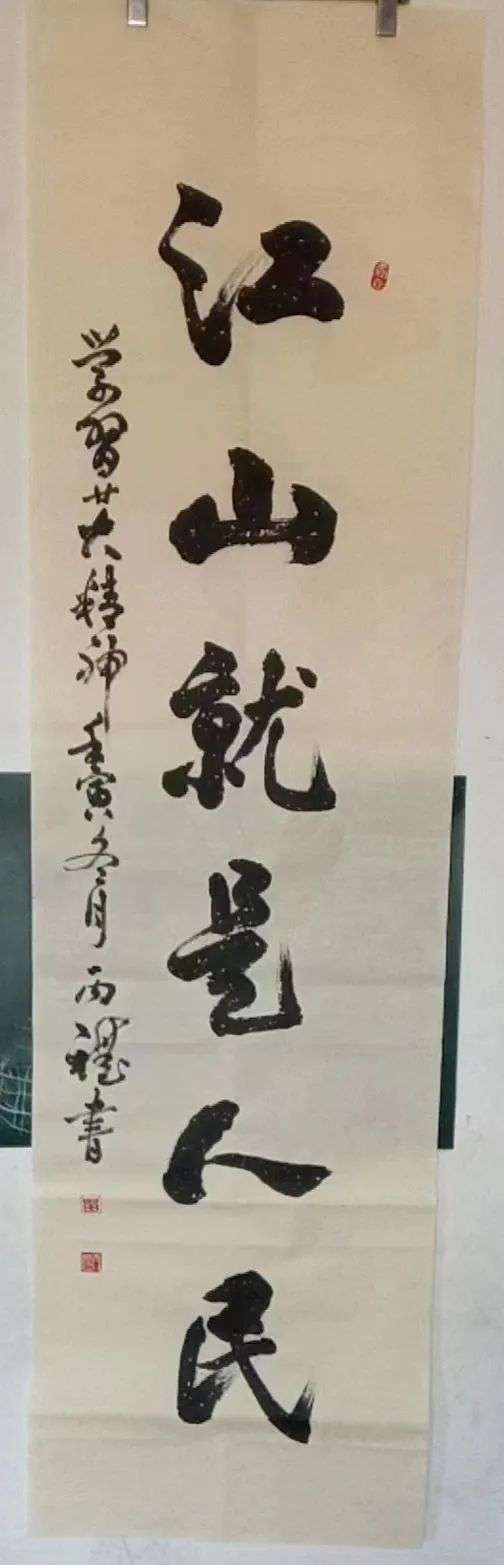 江山就是人民
学习廿大精神 壬寅冬月 丙
书